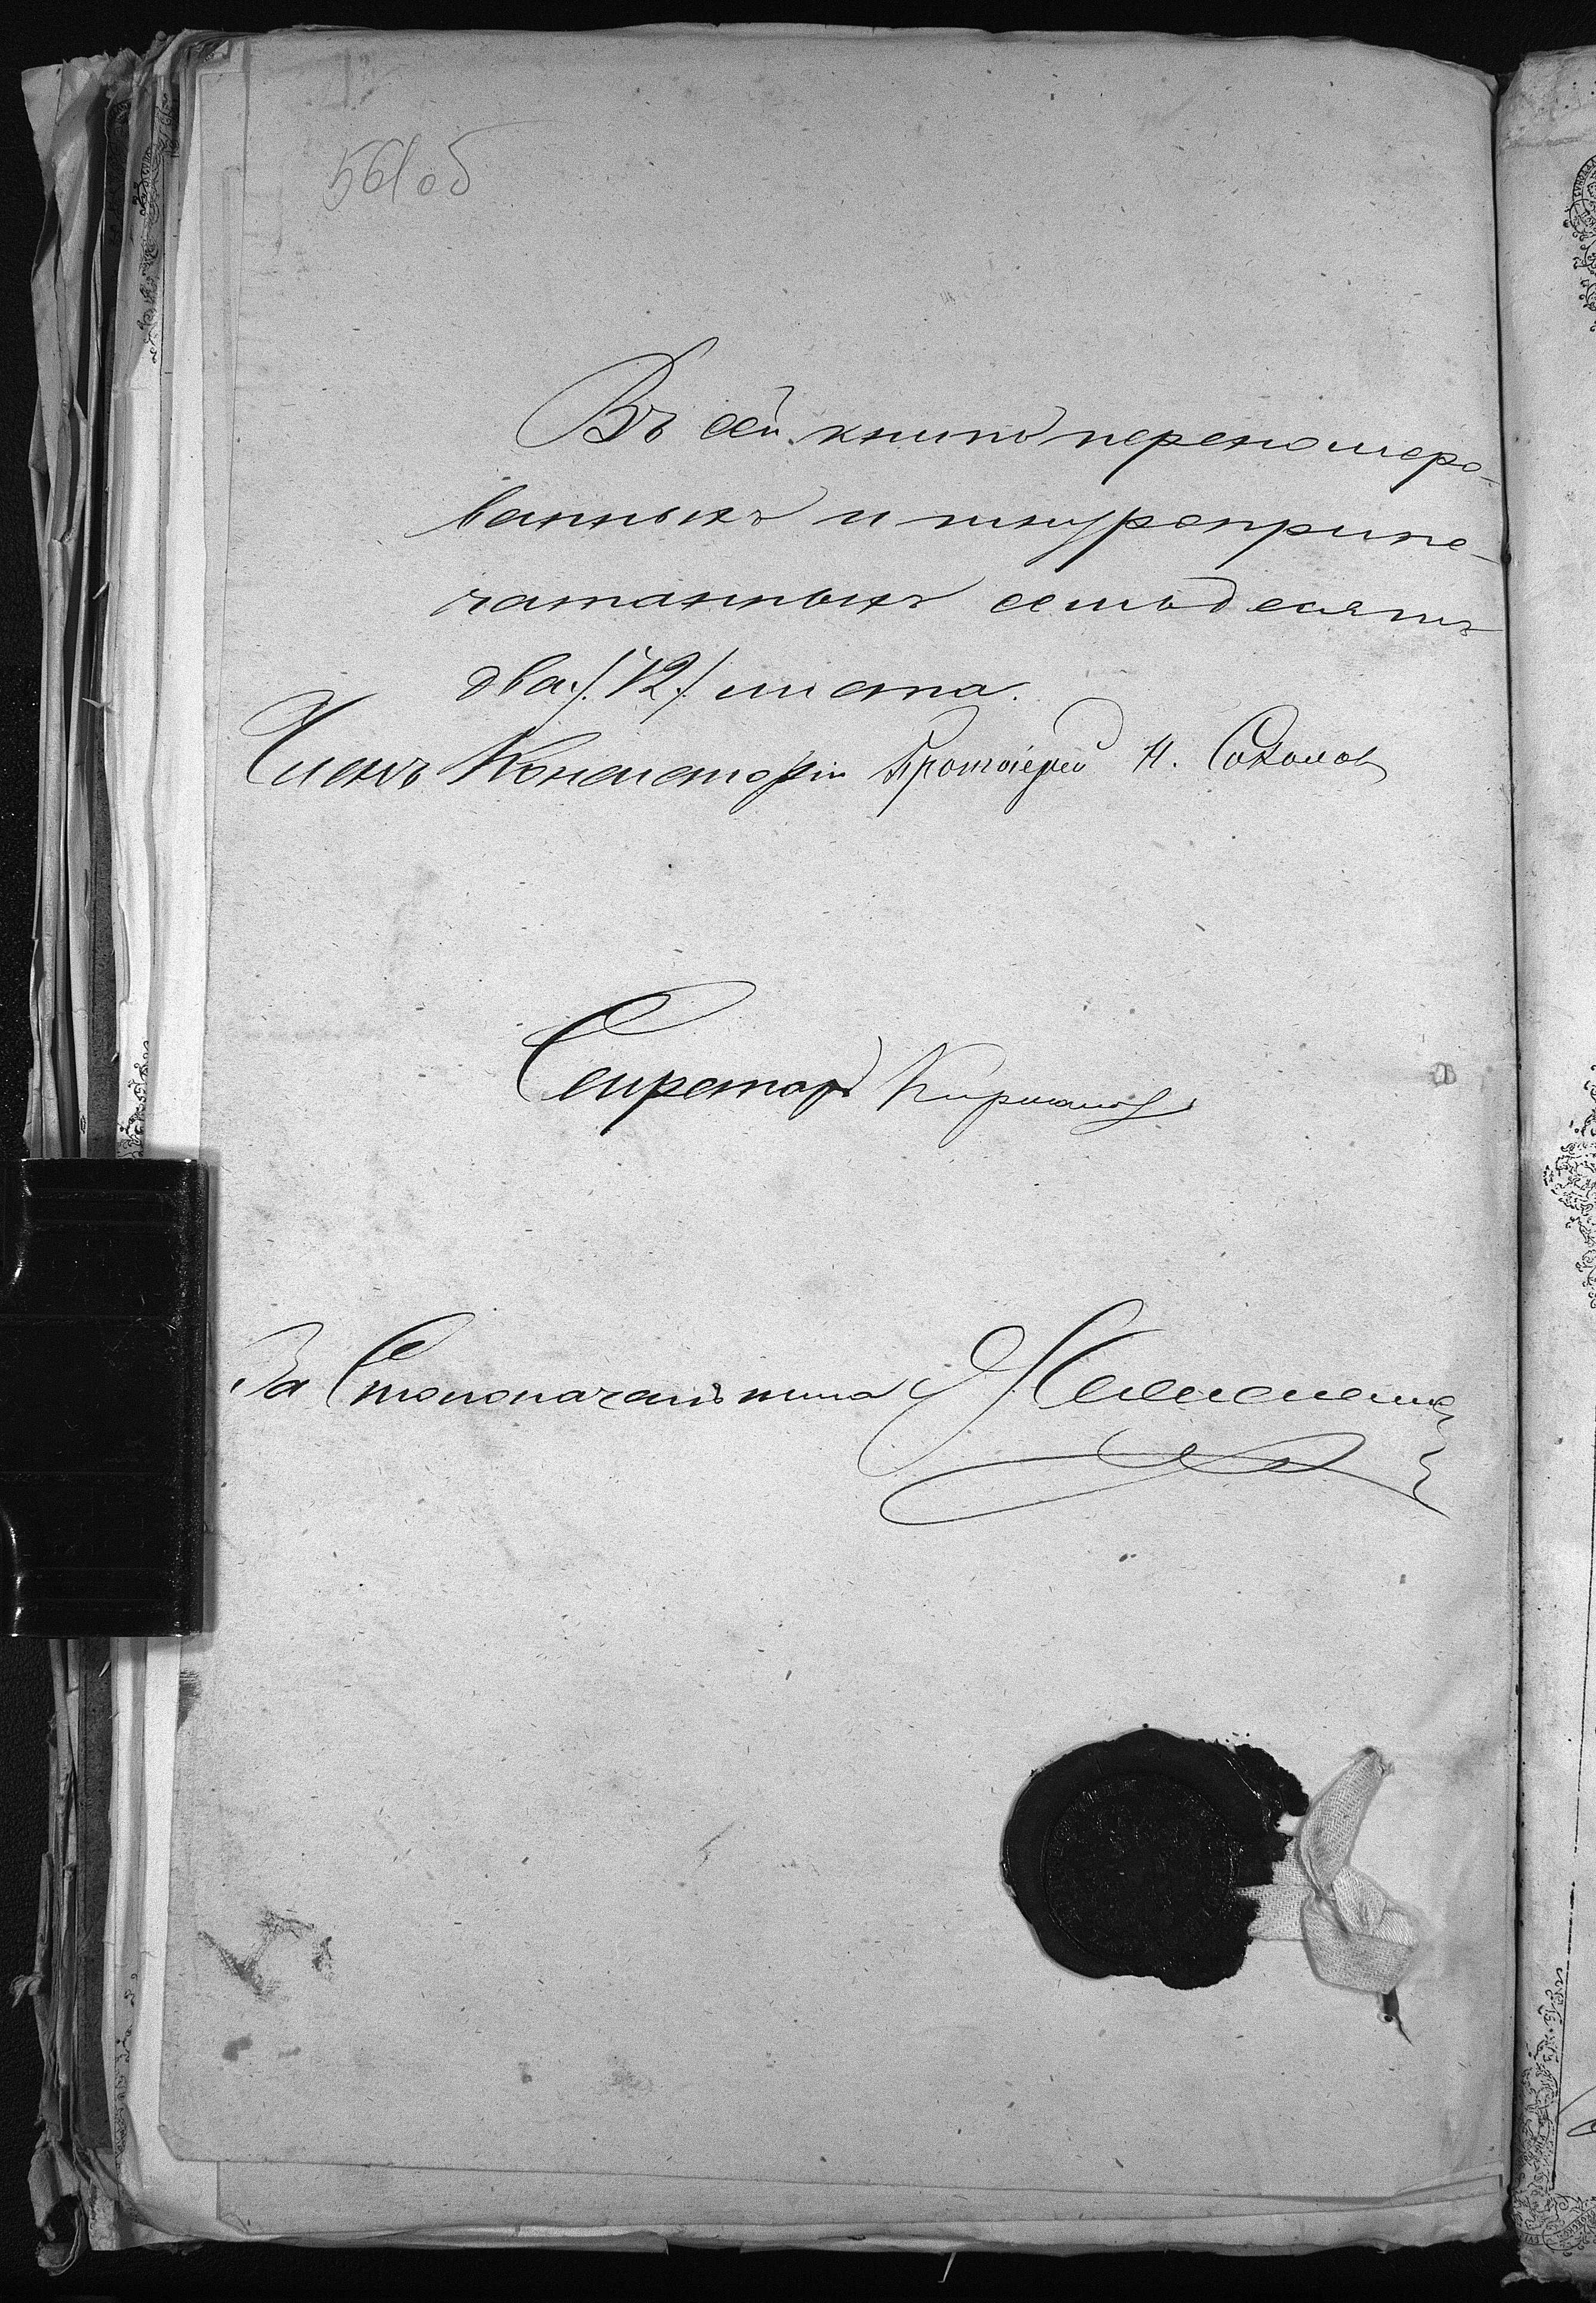 561 об
Въ сей книгѣ перенумеро-
ванныхъ и шнуроприпе-
чатанныхъ семьдесятъ
два /.72./ листа.
Членъ Консисторіи Протоіерей Н. Соколов
Секретарь
За Столоначальника